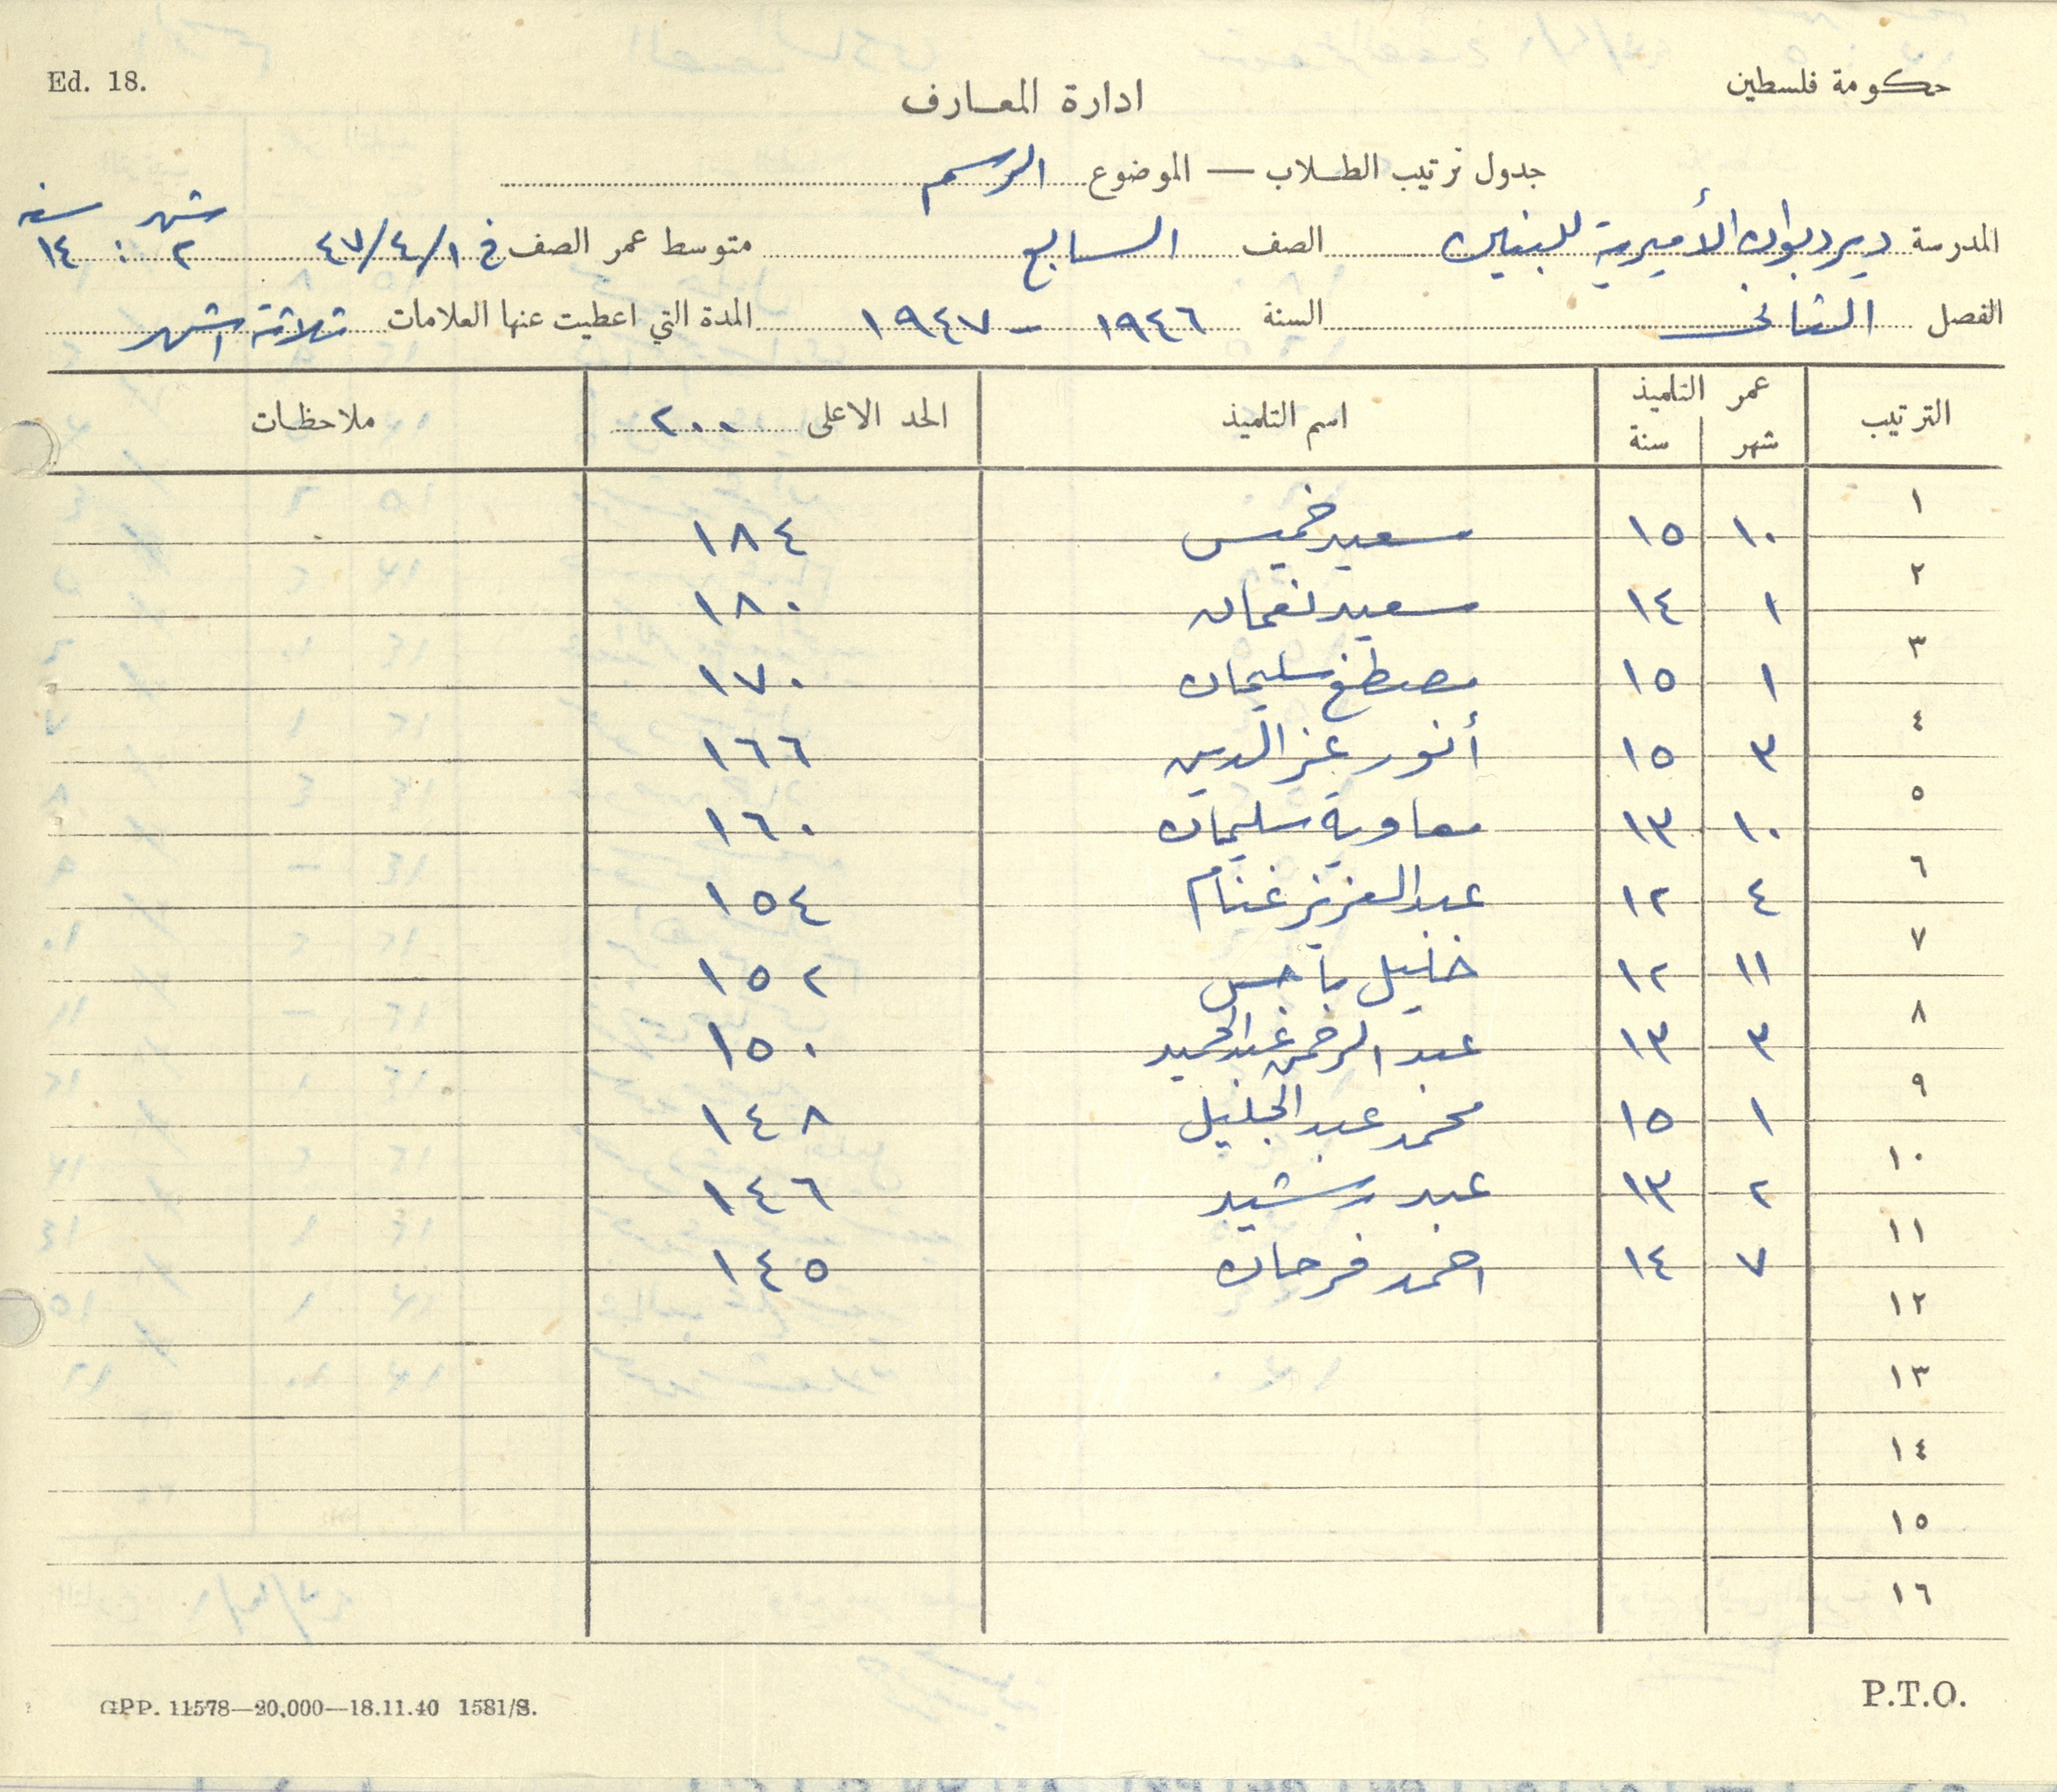 Ed. 18.
حكومة فلسطين
ادارة المعارف
جدول ترتيب الطلاب — الموضوع الرسم
المدرسة ديردبوان الأميرية للبنين الصف السابع متوسط عمر الصف في ٤٧/٤/١ شهر ٢ : سنة ١٤
الفصل الثاني السنة ١٩٤٦ - ١٩٤٧ المدة التي اعطيت عنها العلامات ثلاثة اشهر
الترتيب عمر التلميذ شهر سنة اسم التلميذ الحد الاعلى ٢٠٠ ملاحظات
١ ١٠ ١٥ سعيد خميس ١٨٤
٢ ١ ١٤ سعيد نعمان ١٨٠
٣ ١ ١٥ مصطفى سليمان ١٧٠
٤ ٣ ١٥ أنور عز الدين ١٦٦
٥ ١٠ ١٣ معاوية سليمان ١٦٠
٦ ٤ ١٢ عبد العزيز غنام ١٥٤
٧ ١١ ١٢ خليل ياجس ١٥٢
٨ ٣ ١٣ عبد الرحمن عبد الحميد ١٥٠
٩ ١ ١٥ محمد عبد الجليل ١٤٨
١٠ ٢ ١٣ عبد رشيد ١٤٦
١١ ٧ ١٤ احمد فرحان ١٤٥
١٢
١٣
١٤
١٥
١٦
GPP. 11578—20,000—18.11.40 1581/S.
P.T.O.